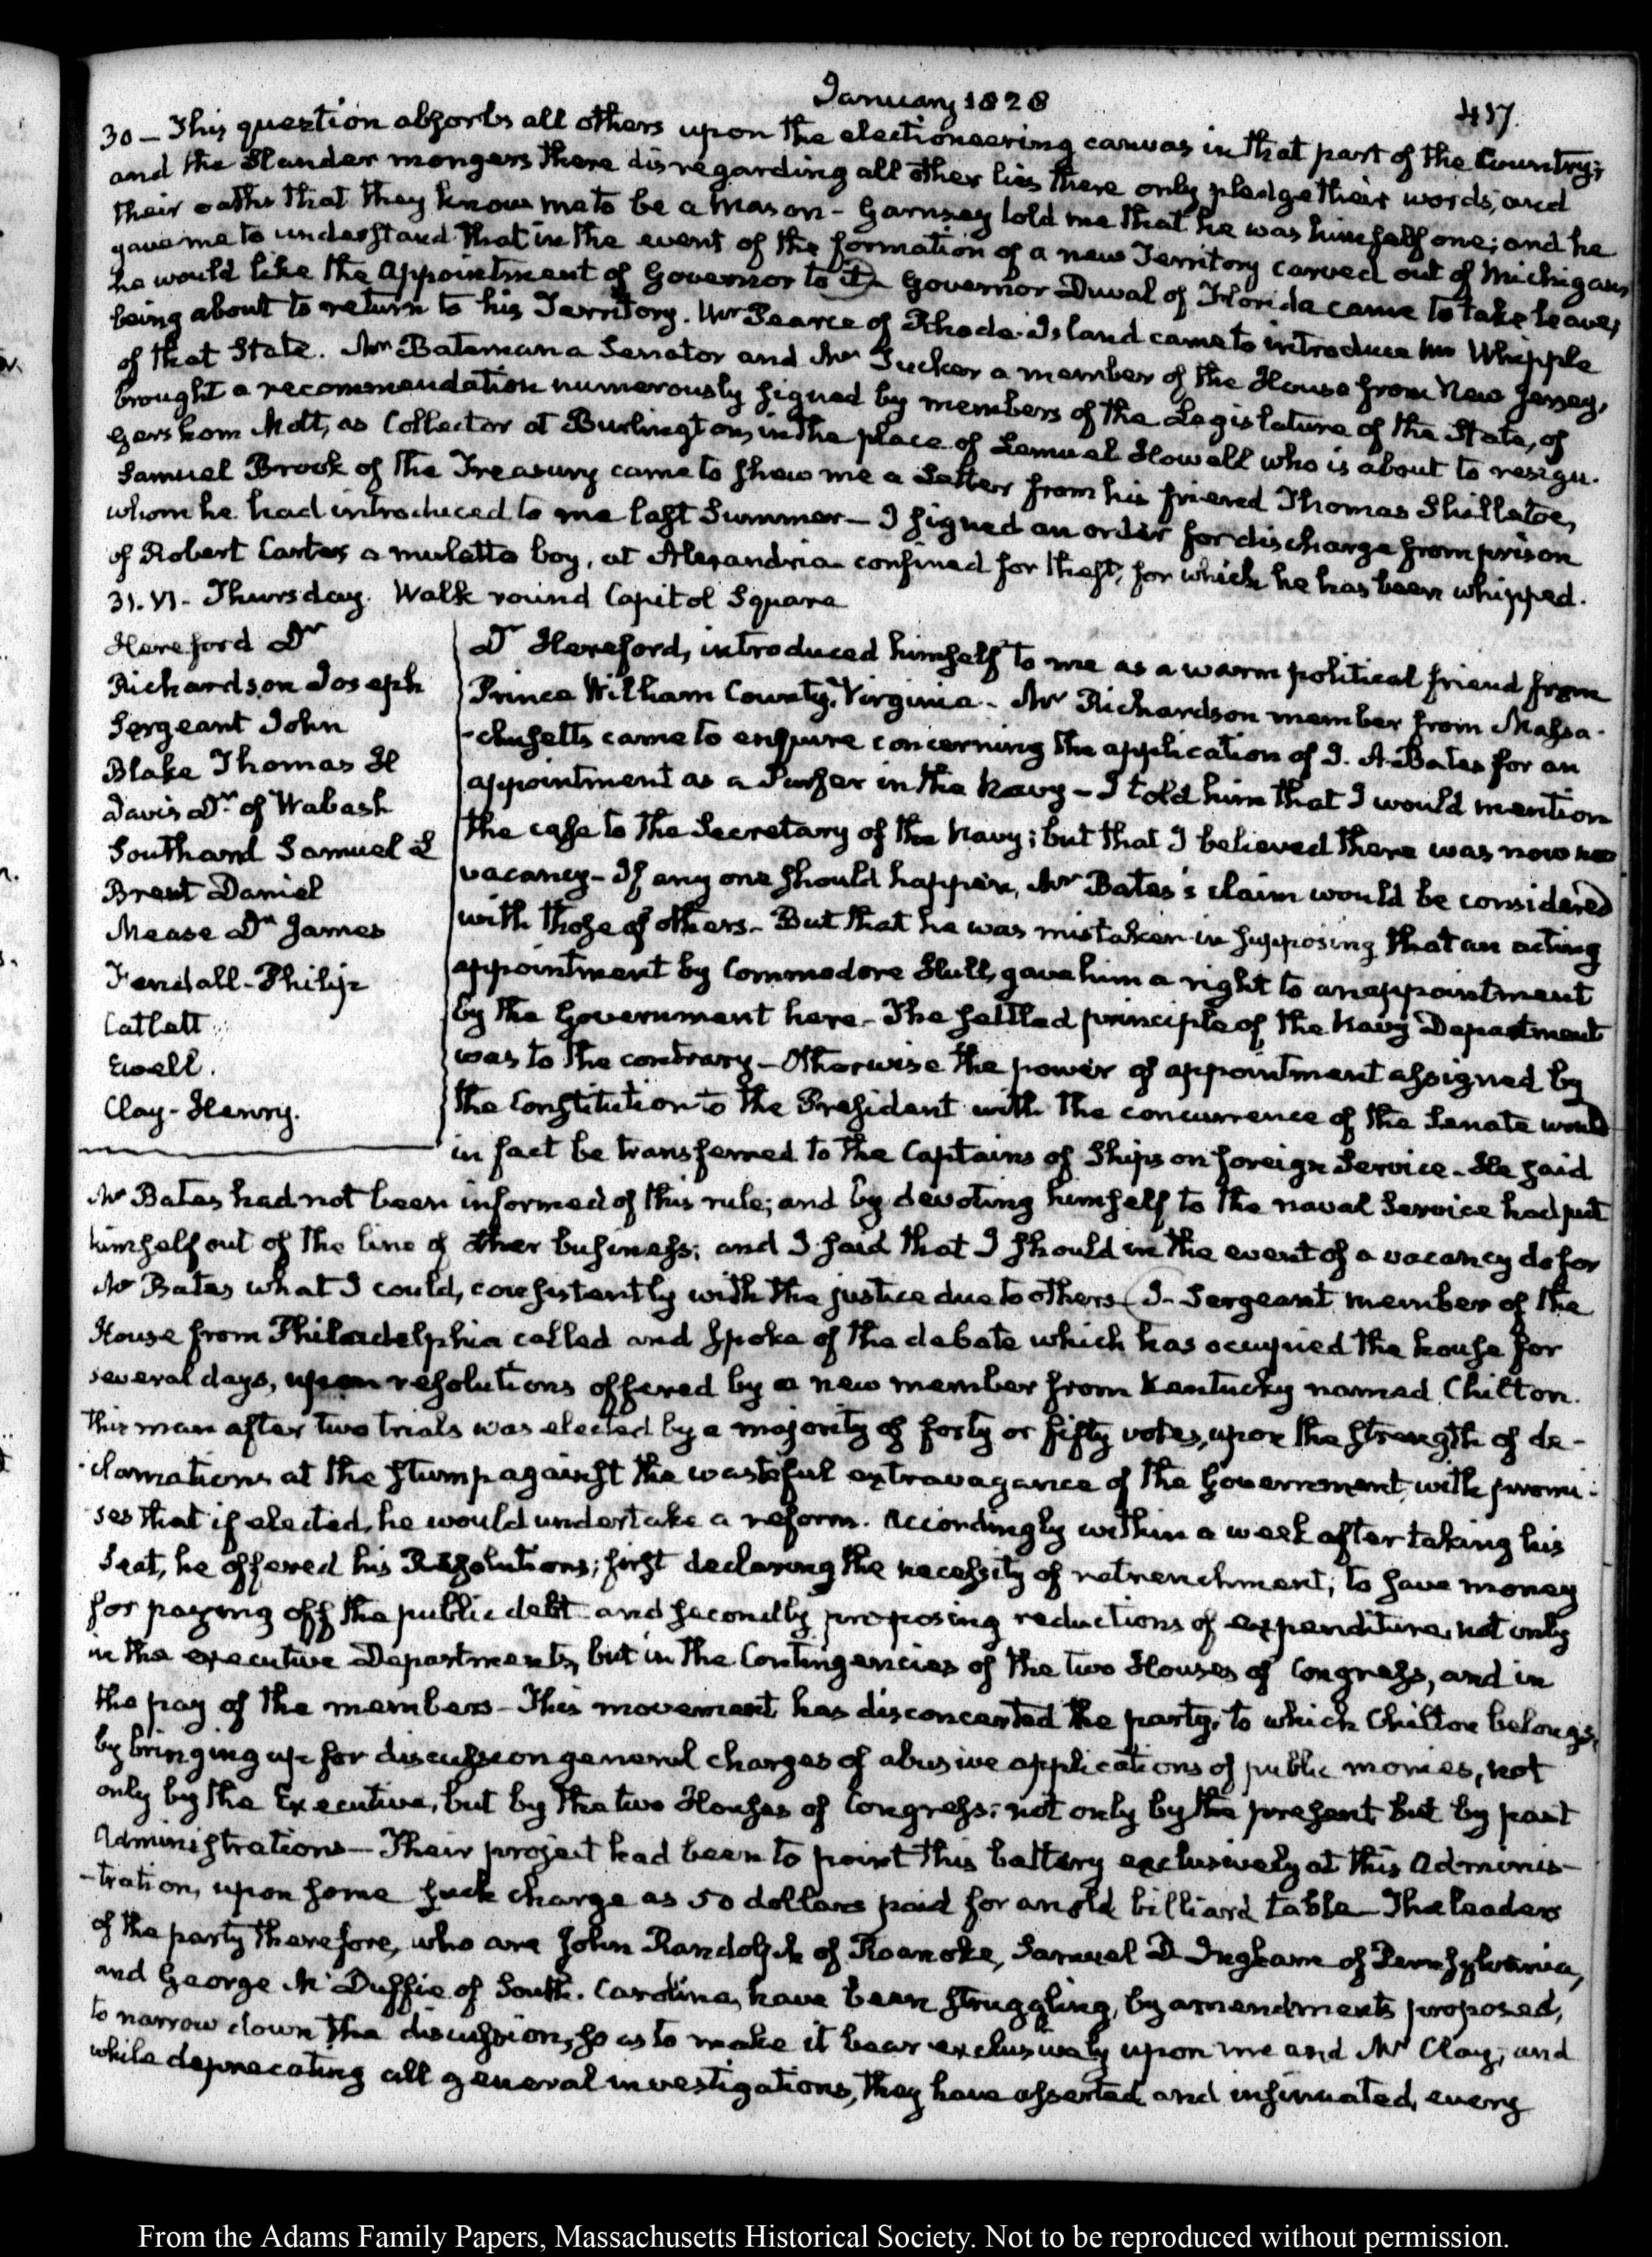 January 1828
417.
30 - This question absorbs all others upon the electioneering canvas in that part of the Country;
and the Slander mongers there disregarding all other lies there only pledge their words, and
their oaths that they know me to be a Mason - Garnsey told me that he was himself one; and he
gave me to understand that in the event of the formation of a new Territory carved out of Michigan
he would like the Appointment of Governor to it - Governor Duval of Florida came to take leave,
being about to return to his Territory. Mr Pearce of Rhode-Island came to introduce Mr Whipple
of that State. Mr Bateman a Senator and Mr Tucker a member of the House from New Jersey,
brought a recommendation numerously signed by members of the Legislature of the State, of
Gershom Mott, as Collector at Burlington, in the place of Lemuel Howell who is about to resign.
Samuel Brook of the Treasury came to shew me a Letter from his friend Thomas Shillatoe,
whom he had introduced to me last Summer - I signed an order for discharge from prison
of Robert Carter, a mulatto boy, at Alexandria confined for theft, for which he has been whipped.
31. VI. Thursday. Walk round Capitol Square
Hereford Dr
Richardson Joseph
Sergeant John
Blake Thomas H
Davis Dr. of Wabash
Southard Samuel L
Brent Daniel
Mease Dr James
Fendall-Philip
Catlett
Ewell.
Clay-Henry.
Dr Hereford, introduced himself to me as a warm political friend from
Prince William County, Virginia - Mr Richardson member from Massa-
-chusetts came to enquire concerning the application of J. A. Bates for an
appointment as a Purser in the Navy - I told him that I would mention
the case to the Secretary of the Navy; but that I believed there was now no
vacancy - If any one should happen, Mr Bates's claim would be considered
with those of others - But that he was mistaken in supposing that an acting
appointment by Commodore Hull, gave him a right to an appointment
by the Government here - The settled principle of the Navy Department
was to the contrary - Otherwise the power of appointment assigned by
the Constitution to the President with the concurrence of the Senate would
in fact be transferred to the Captains of Ships on foreign Service - He said
Mr Bates had not been informed of this rule; and by devoting himself to the naval Service had put
himself out of the line of other business; and I said that I should in the event of a vacancy do for
Mr Bates what I could, consistently with the justice due to others - J- Sergeant member of the
House from Philadelphia called and spoke of the debate which has occupied the house for
several days, upon resolutions offered by a new member from Kentucky named Chilton.
This man after two trials was elected by a majority of forty or fifty votes, upon the strength of de-
-clamations at the stump against the wasteful extravagance of the Government, with promi-
ses that if elected, he would undertake a reform. Accordingly within a week after taking his
Seat, he offered his Resolutions; first declaring the necessity of retrenchment; to save money
for paying off the public debt and secondly proposing reductions of expenditure, not only
in the executive Departments, but in the Contingencies of the two Houses of Congress, and in
the pay of the members - This movement has disconcerted the party, to which Chilton belongs,
by bringing up for discussion general charges of abusive applications of public monies, not
only by the Executive, but by the two Houses of Congress; not only by the present but by past
Administrations - Their project had been to point this battery exclusively at this Adminis-
-tration, upon some such charge as 50 dollars paid for an old billiard table - The leaders
of the party therefore, who are John Randolph of Roanoke, Samuel D Ingham of Pennsylvania,
and George McDuffie of South. Carolina, have been struggling, by amendments proposed,
to narrow down the discussion, so as to make it bear exclusively upon me and Mr Clay; and
while deprecating all general investigations, they have asserted and insinuated, every
From the Adams Family Papers, Massachusetts Historical Society. Not to be reproduced without permission.